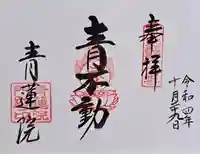 奉拝
令和四年
十月二十九日
青不動
青蓮院